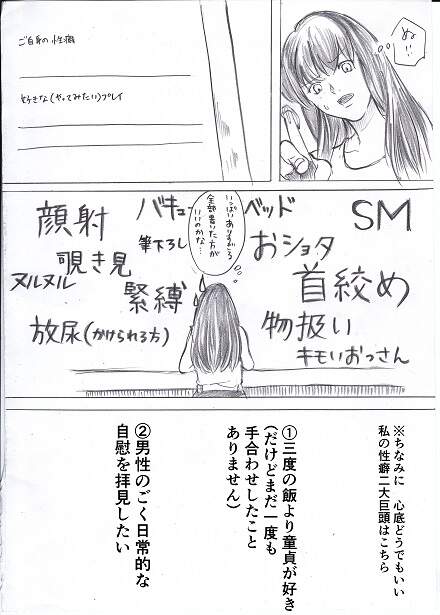 ぬ!!
ご自身の性癖
好きな(やってみたい)プレイ
SM
ベッド
おショタ
首絞め
物扱い
キモいおっさん
いっぱいありすぎる
全部書いた方が
いいのかな…
バキュー
筆下ろし
顔射
覗き見
ヌルヌル
緊縛
放尿(かけられる方)
※ちなみに 心底どうでもいい
私の性癖二大巨頭はこちら
①三度の飯より童貞が好き
(だけどまだ一度も
手合わせしたこと
ありません)
②男性のごく日常的な
自慰を拝見したい